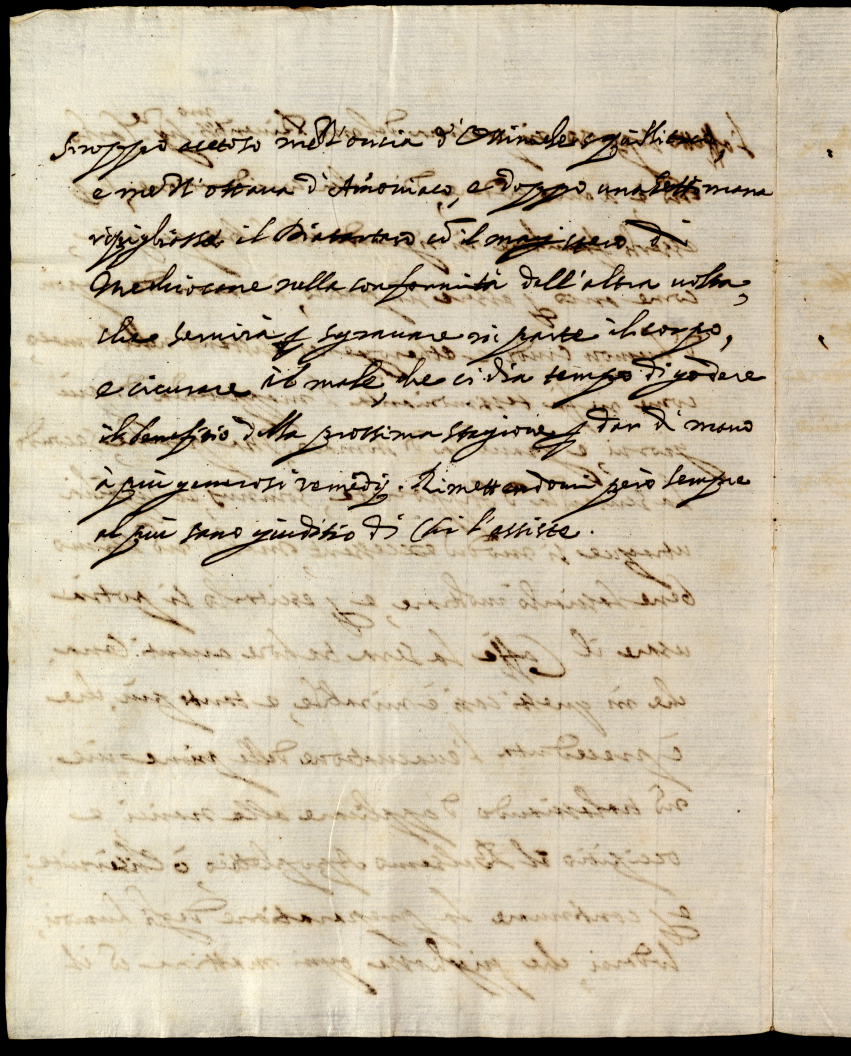 Siroppo acetoso mezz'oncia d'Ossimele squillitico,
e mezz'ottava d'Amoniaco, e doppo una settimana
ripigliasse il Diatartaro cō il magistero di
Mechiocane nella conformità dell'altra uolta,
che seruirà ꝑ sgrauare in parte il corpo,
e cicurare il male, che ci dia tempo di godere
il benefitio della prossima stagione ꝑ dar di mano
à più generosi remedij. Rimettendomi però sempre
al più sano giuditio di Chi l'assiste.